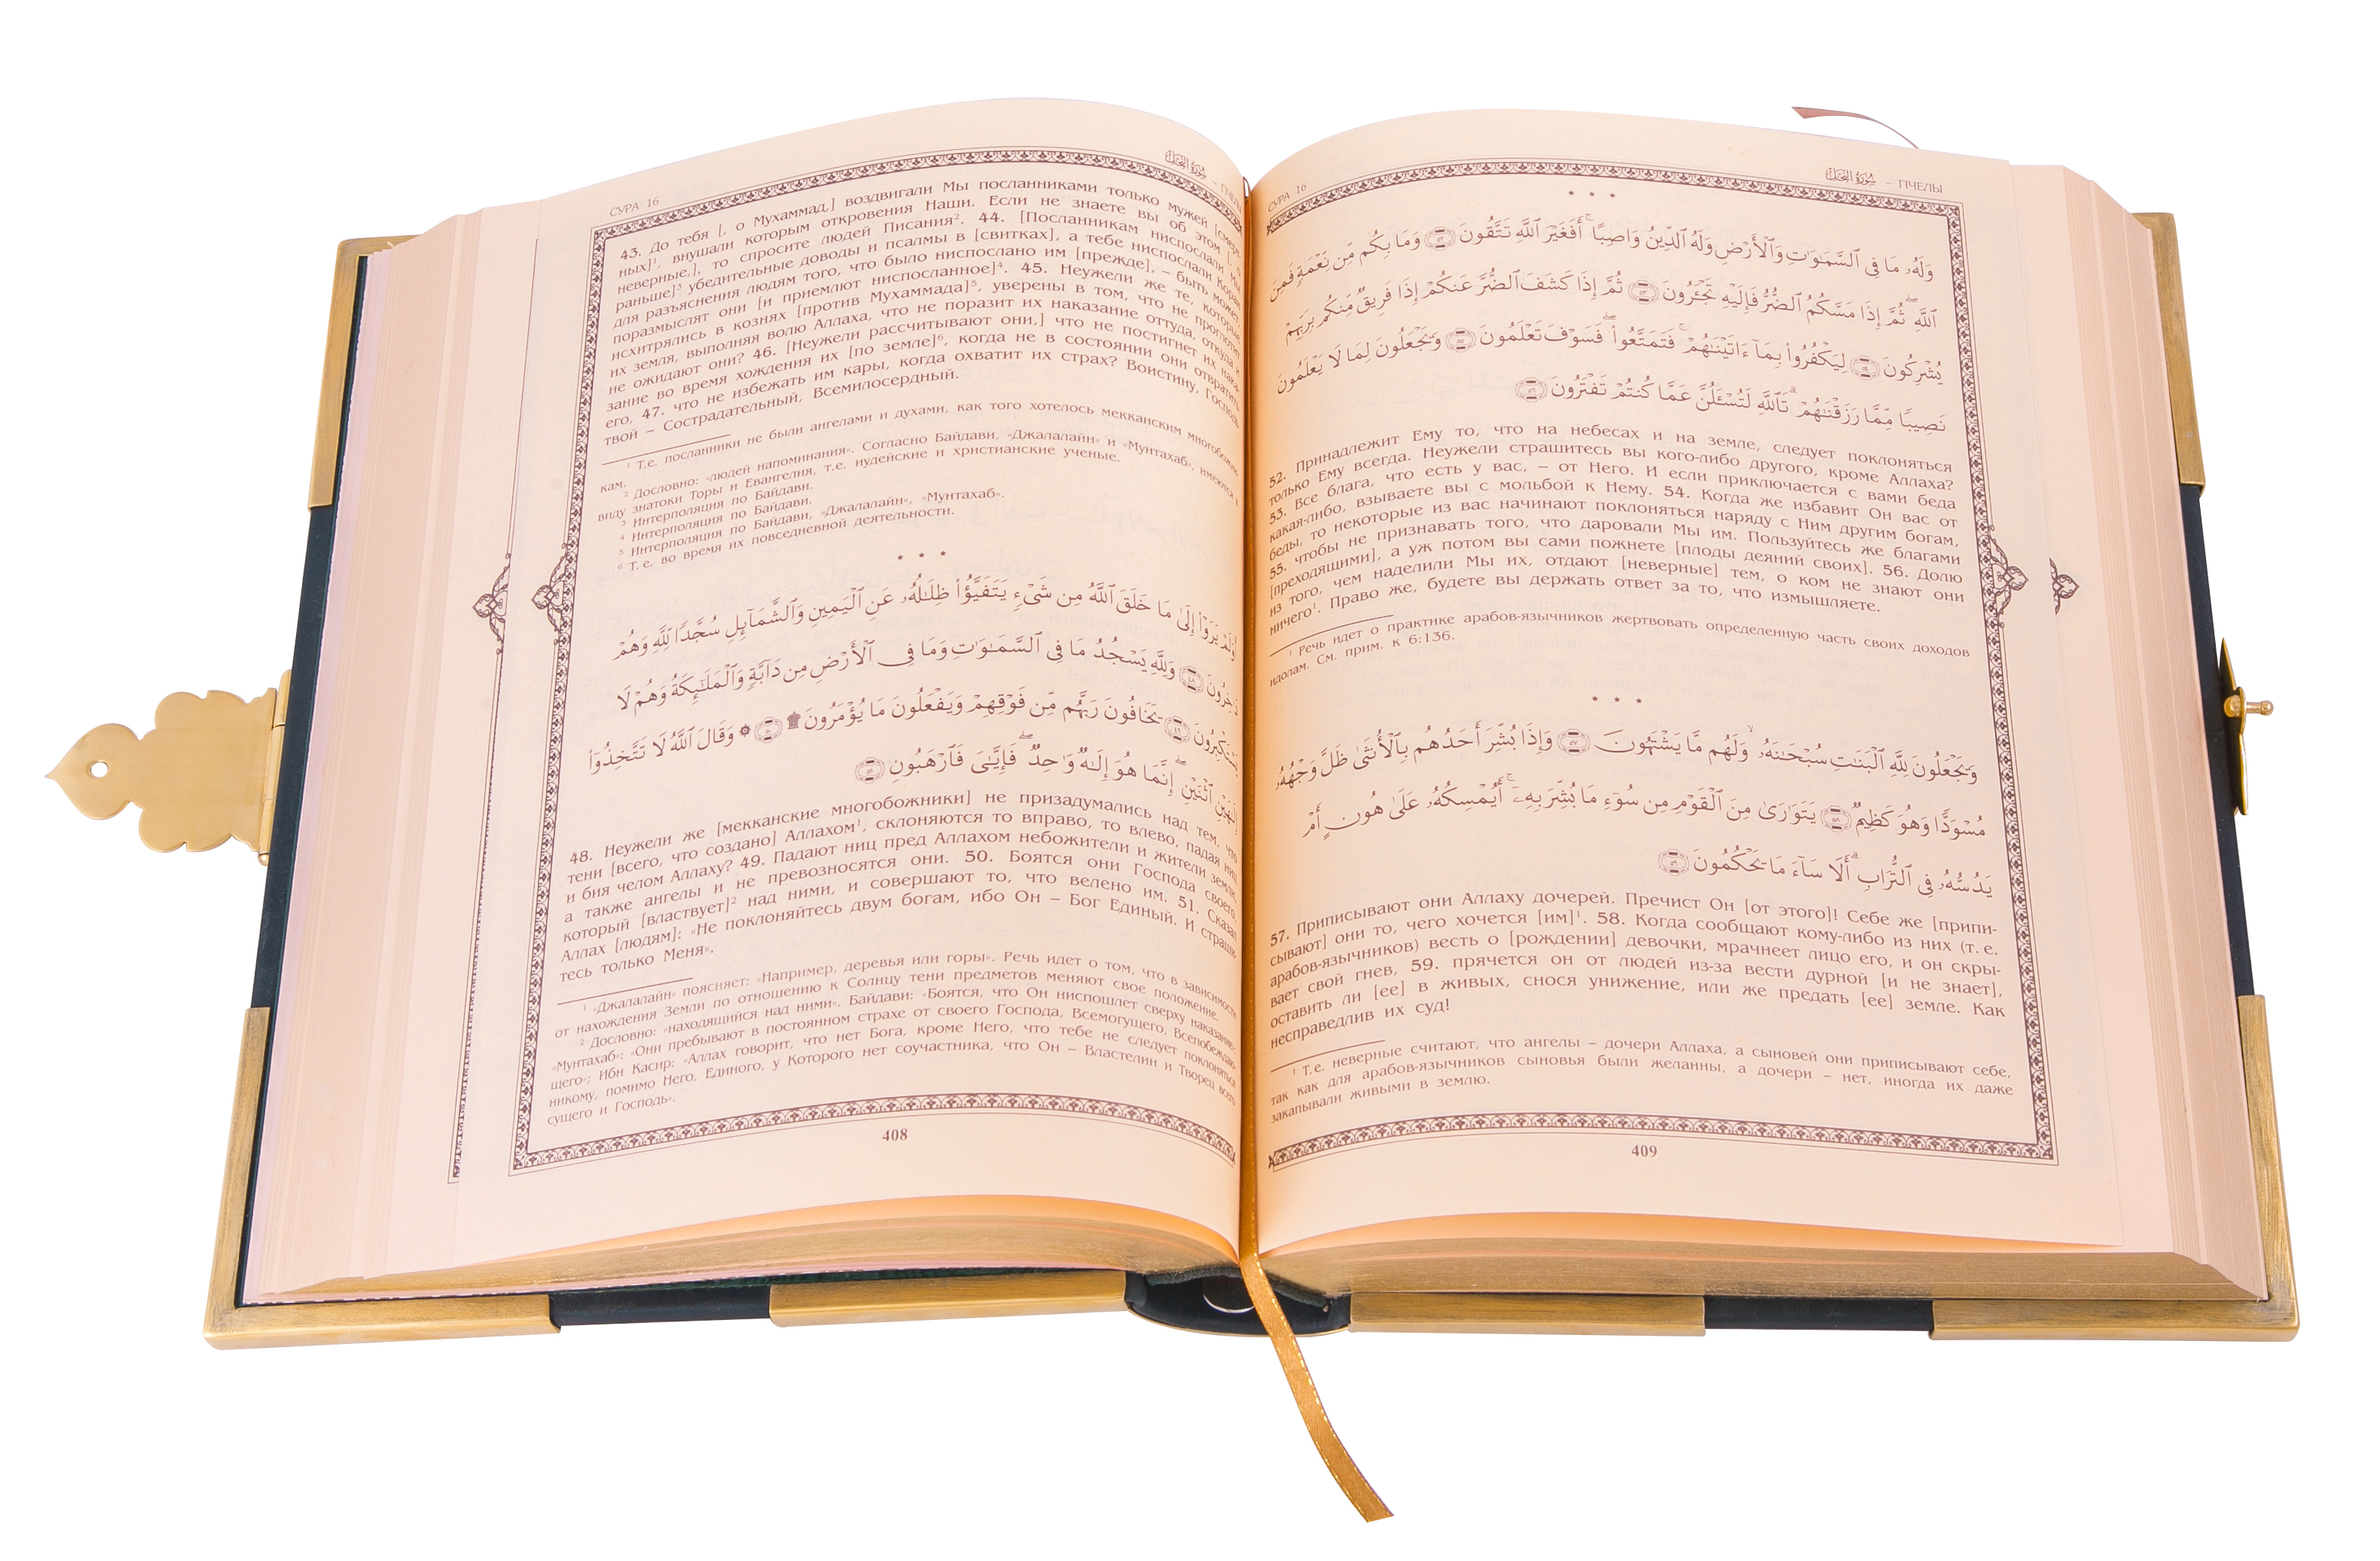 СУРА 16
سُورَةُ النَّحْلِ – ПЧЕЛЫ
43. До тебя [, о Мухаммад,] воздвигали Мы посланниками только мужей [смерт-
ных]¹, внушали которым откровения Наши. Если не знаете вы об этом [, о
неверные,], то спросите людей Писания². 44. [Посланникам ниспослали Мы
раньше]³ убедительные доводы и псалмы в [свитках], а тебе ниспослали Коран
для разъяснения людям того, что было ниспослано им [прежде], – быть может,
поразмыслят они [и приемлют ниспосланное]⁴. 45. Неужели же те, которые
исхитрялись в кознях [против Мухаммада]⁵, уверены в том, что не проглотит
их земля, выполняя волю Аллаха, что не поразит их наказание оттуда, откуда и
не ожидают они? 46. [Неужели рассчитывают они,] что не постигнет их нака-
зание во время хождения их [по земле]⁶, когда не в состоянии они отвратить
его, 47. что не избежать им кары, когда охватит их страх? Воистину, Господь
твой – Сострадательный, Всемилосердный.
¹ Т.е. посланники не были ангелами и духами, как того хотелось мекканским многобожни-
кам.
² Дословно: «людей напоминания». Согласно Байдави, «Джалалайн» и «Мунтахаб», имеются в
виду знатоки Торы и Евангелия, т.е. иудейские и христианские ученые.
³ Интерполяция по Байдави.
⁴ Интерполяция по Байдави.
⁵ Интерполяция по Байдави, «Джалалайн», «Мунтахаб».
⁶ Т.е. во время их повседневной деятельности.
* * *
أَوَلَمْ يَرَوْا۟ إِلَىٰ مَا خَلَقَ ٱللَّهُ مِن شَىْءٍ يَتَفَيَّؤُا۟ ظِلَـٰلُهُۥ عَنِ ٱلْيَمِينِ وَٱلشَّمَآئِلِ سُجَّدًا لِّلَّهِ وَهُمْ
دَٰخِرُونَ ٤٨ وَلِلَّهِ يَسْجُدُ مَا فِى ٱلسَّمَـٰوَٰتِ وَمَا فِى ٱلْأَرْضِ مِن دَآبَّةٍ وَٱلْمَلَـٰٓئِكَةُ وَهُمْ لَا
يَسْتَكْبِرُونَ ٤٩ يَخَافُونَ رَبَّهُم مِّن فَوْقِهِمْ وَيَفْعَلُونَ مَا يُؤْمَرُونَ ۩ ٥٠ ۞ وَقَالَ ٱللَّهُ لَا تَتَّخِذُوٓا۟
إِلَـٰهَيْنِ ٱثْنَيْنِ ۖ إِنَّمَا هُوَ إِلَـٰهٌ وَٰحِدٌ ۖ فَإِيَّـٰىَ فَٱرْهَبُونِ ٥١
48. Неужели же [мекканские многобожники] не призадумались над тем, что
тени [всего, что создано] Аллахом¹, склоняются то вправо, то влево, падая ниц
и бия челом Аллаху? 49. Падают ниц пред Аллахом небожители и жители земли,
а также ангелы и не превозносятся они. 50. Боятся они Господа своего,
который [властвует]² над ними, и совершают то, что велено им. 51. Сказал
Аллах [людям]: «Не поклоняйтесь двум богам, ибо Он – Бог Единый. И страши-
тесь только Меня».
¹ «Джалалайн» поясняет: «Например, деревья или горы». Речь идет о том, что в зависимости
от нахождения Земли по отношению к Солнцу тени предметов меняют свое положение.
² Дословно: «находящийся над ними». Байдави: «Боятся, что Он ниспошлет сверху наказание»;
«Мунтахаб»: «Они пребывают в постоянном страхе от своего Господа, Всемогущего, Всепобеждаю-
щего»; Ибн Касир: «Аллах говорит, что нет Бога, кроме Него, что тебе не следует поклоняться
никому, помимо Него, Единого, у Которого нет соучастника, что Он – Властелин и Творец всего
сущего и Господь».
408
СУРА 16
سُورَةُ النَّحْلِ – ПЧЕЛЫ
* * *
وَلَهُۥ مَا فِى ٱلسَّمَـٰوَٰتِ وَٱلْأَرْضِ وَلَهُ ٱلدِّينُ وَاصِبًا ۚ أَفَغَيْرَ ٱللَّهِ تَتَّقُونَ ٥٢ وَمَا بِكُم مِّن نِّعْمَةٍ فَمِنَ
ٱللَّهِ ۖ ثُمَّ إِذَا مَسَّكُمُ ٱلضُّرُّ فَإِلَيْهِ تَجْـَٔرُونَ ٥٣ ثُمَّ إِذَا كَشَفَ ٱلضُّرَّ عَنكُمْ إِذَا فَرِيقٌ مِّنكُم بِرَبِّهِمْ
يُشْرِكُونَ ٥٤ لِيَكْفُرُوا۟ بِمَآ ءَاتَيْنَـٰهُمْ ۚ فَتَمَتَّعُوا۟ ۖ فَسَوْفَ تَعْلَمُونَ ٥٥ وَيَجْعَلُونَ لِمَا لَا يَعْلَمُونَ
نَصِيبًا مِّمَّا رَزَقْنَـٰهُمْ ۗ تَٱللَّهِ لَتُسْـَٔلُنَّ عَمَّا كُنتُمْ تَفْتَرُونَ ٥٦
52. Принадлежит Ему то, что на небесах и на земле, следует поклоняться
только Ему всегда. Неужели страшитесь вы кого-либо другого, кроме Аллаха?
53. Все блага, что есть у вас, – от Него. И если приключается с вами беда
какая-либо, взываете вы с мольбой к Нему. 54. Когда же избавит Он вас от
беды, то некоторые из вас начинают поклоняться наряду с Ним другим богам,
55. чтобы не признавать того, что даровали Мы им. Пользуйтесь же благами
[преходящими], а уж потом вы сами пожнете [плоды деяний своих]. 56. Долю
из того, чем наделили Мы их, отдают [неверные] тем, о ком не знают они
ничего¹. Право же, будете вы держать ответ за то, что измышляете.
¹ Речь идет о практике арабов-язычников жертвовать определенную часть своих доходов
идолам. См. прим. к 6:136.
* * *
وَيَجْعَلُونَ لِلَّهِ ٱلْبَنَـٰتِ سُبْحَـٰنَهُۥ ۙ وَلَهُم مَّا يَشْتَهُونَ ٥٧ وَإِذَا بُشِّرَ أَحَدُهُم بِٱلْأُنثَىٰ ظَلَّ وَجْهُهُۥ
مُسْوَدًّا وَهُوَ كَظِيمٌ ٥٨ يَتَوَٰرَىٰ مِنَ ٱلْقَوْمِ مِن سُوٓءِ مَا بُشِّرَ بِهِۦٓ ۚ أَيُمْسِكُهُۥ عَلَىٰ هُونٍ أَمْ
يَدُسُّهُۥ فِى ٱلتُّرَابِ ۗ أَلَا سَآءَ مَا يَحْكُمُونَ ٥٩
57. Приписывают они Аллаху дочерей. Пречист Он [от этого]! Себе же [припи-
сывают] они то, чего хочется [им]¹. 58. Когда сообщают кому-либо из них (т.е.
арабов-язычников) весть о [рождении] девочки, мрачнеет лицо его, и он скры-
вает свой гнев, 59. прячется он от людей из-за вести дурной [и не знает],
оставить ли [ее] в живых, снося унижение, или же предать [ее] земле. Как
несправедлив их суд!
¹ Т.е. неверные считают, что ангелы – дочери Аллаха, а сыновей они приписывают себе,
так как для арабов-язычников сыновья были желанны, а дочери – нет, иногда их даже
закапывали живыми в землю.
409